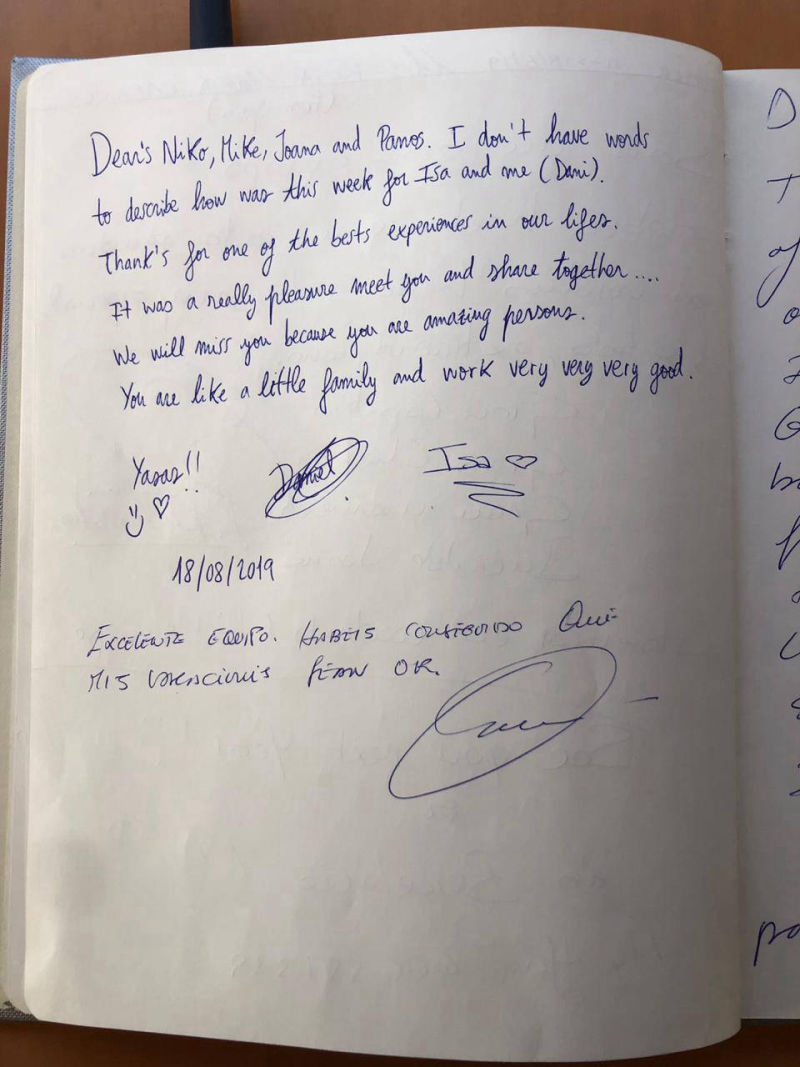 Dear's Niko, Mike, Joana and Panos. I don't have words
to describe how was this week for Isa and me (Dani).
Thank's for one of the bests experiences in our lifes.
It was a really pleasure meet you and share together....
We will miss you because you are amazing persons.
You are like a little family and work very very very good.
Yasas!! Daniel Isa
18/08/2019
EXCELENTE EQUIPO. HABEIS CONSEGUIDO QUE
MIS VACACIONES SEAN OK.